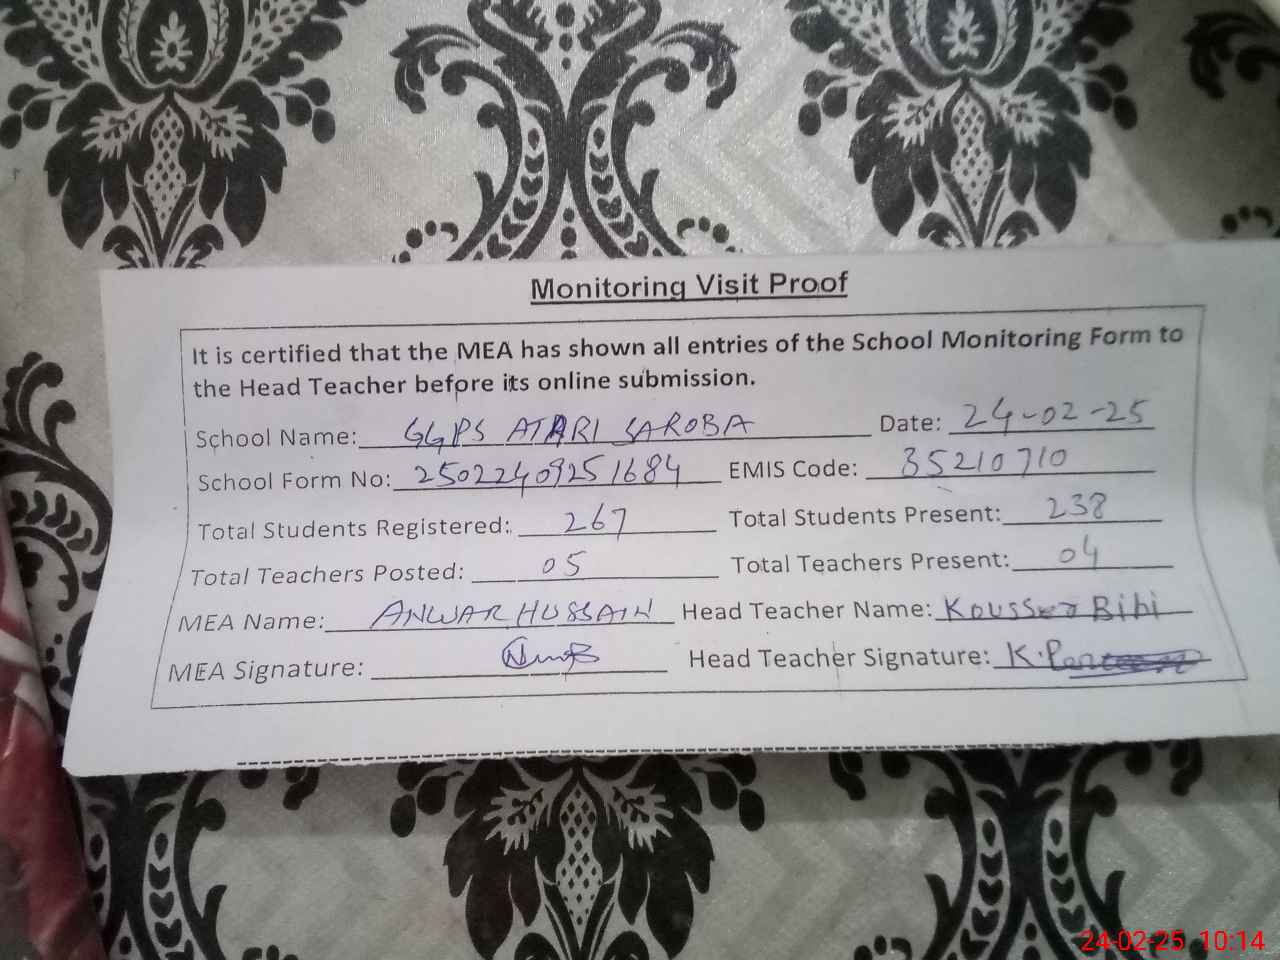 Monitoring Visit Proof
It is certified that the MEA has shown all entries of the School Monitoring Form to
the Head Teacher before its online submission.
School Name: GGPS ATARI SAROBA Date: 24-02-25
School Form No: 2502240925 1684 EMIS Code: 35210710
Total Students Registered: 267 Total Students Present: 238
Total Teachers Posted: 05 Total Teachers Present: 04
MEA Name: ANWAR HUSSAIN Head Teacher Name: Bibi
MEA Signature: Head Teacher Signature:
24-02-25 10:14